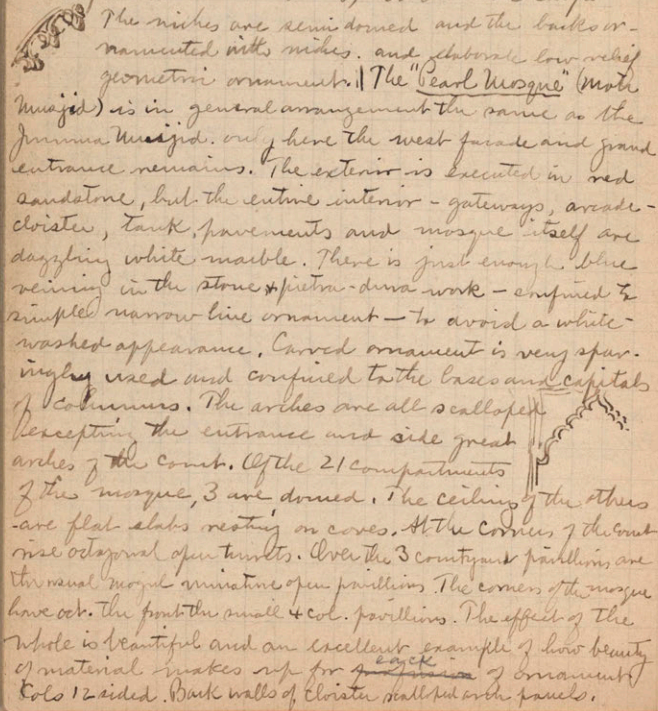 The niches are semi domed and the backs or-
namented with niches. and elaborate low relief
geometric ornament. || The "Pearl Mosque" (Moti
Musjid) is in general arrangement the same as the
Jumma Musjid. only here the west facade and grand
entrance remains. The exterior is executed in red
sandstone, but the entire interior - gateways, arcade-
cloister, tank, pavements and mosque itself are
dazzling white marble. There is just enough blue
veining in the stone & pietra-dura work - confined to
simple narrow line ornament - to avoid a white-
washed appearance. Carved ornament is very spar-
ingly used and confined to the bases and capitals
of columns. The arches are all scalloped
excepting the entrance and side great
arches of the court. Of the 21 compartments
of the mosque, 3 are domed. The ceiling of the others
are flat slabs resting on coves. At the corners of the court
rise octagonal open turrets. Over the 3 courtyard pavillions are
the usual mogul miniature open pavillions. The corners of the mosque
have oct. the front the small 4 col. pavillions. The effect of the
whole is beautiful and an excellent example of how beauty
of material makes up for profusion lack of ornament.
Cols 12 sided. Back walls of cloister scalloped arch panels.